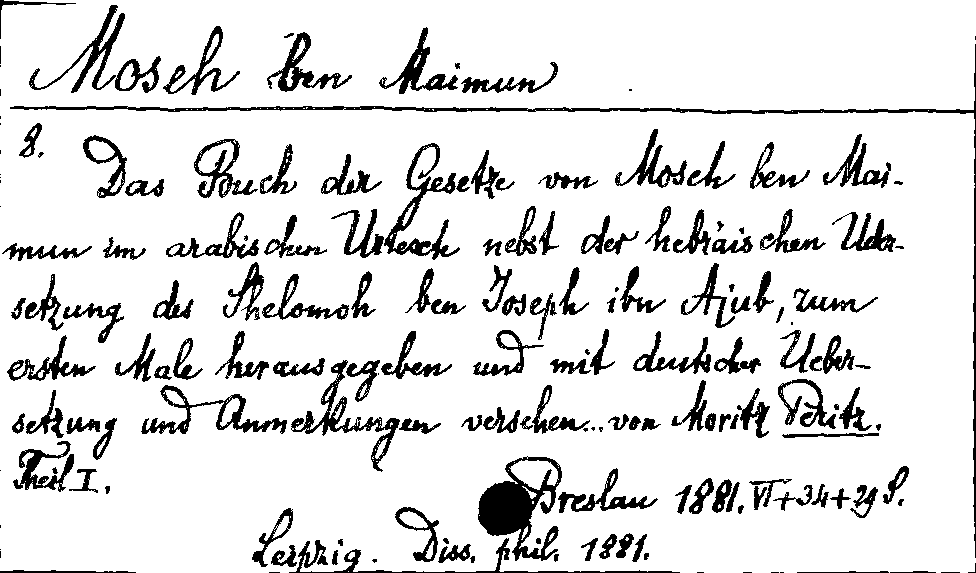 Moseh ben Maimun
8.
Das Buch der Gesetze von Moseh ben Mai-
mun im arabischen Urtexte nebst der hebräischen Ueber-
setzung des Shelomoh ben Joseph ibn Ajub, zum
ersten Male herausgegeben und mit deutscher Ueber-
setzung und Anmerkungen versehen... von Moritz Peritz.
Theil I.
Breslau 1881. VI+34+29 S.
Leipzig. Diss. phil. 1881.